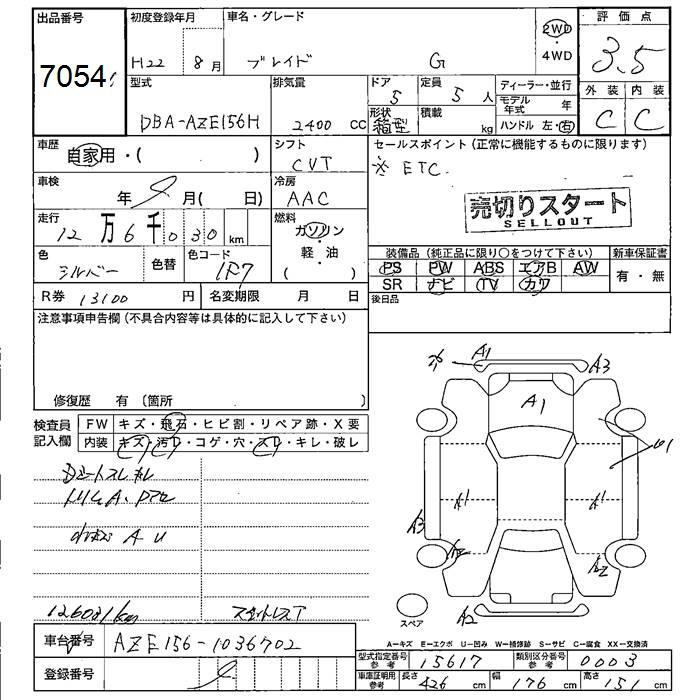 出品番号
7054
初度登録年月
H22 8月
車名・グレード
ブレイド G
2WD
・
4WD
評価点
3.5
外装 内装
C C
型式
DBA-AZE156H
排気量
2400 CC
ドア
5
定員
5人
形状
箱型
積載
kg
ディーラー・並行
モデル年式 年
ハンドル 左・右
車歴
自家用・( )
シフト
CVT
セールスポイント(正常に機能するものに限ります)
※ ETC
売切りスタート
SELLOUT
車検
年 月( 日)
冷房
AAC
走行
12万6千030km
燃料
ガソリン
・
軽・油
( )
色
シルバー
色替
色コード
1F7
装備品(純正品に限り○をつけて下さい)
PS PW ABS エアB AW
SR ナビ TV カワ
新車保証書
有・無
R券 13100円
名変期限 月 日
後日品
注意事項申告欄(不具合内容等は具体的に記入して下さい)
修復歴 有〔箇所 〕
検査員記入欄
FW キズ・飛石・ヒビ割・リペア跡・X要
内装 キズ・汚レ・コゲ・穴・スレ・キレ・破レ
126031km
※ A1 A3
A1
U1
A1 A1
A3
A2
A2
スペア
A-キズ E-エクボ U-凹み W-補修跡 S-サビ C-腐食 XX-交換済
車台番号 AZE156-1036702
登録番号
型式指定番号 参考 15617
類別区分番号 参考 0003
車庫証明用 参考 長さ 426cm 幅 176cm 高さ 151cm